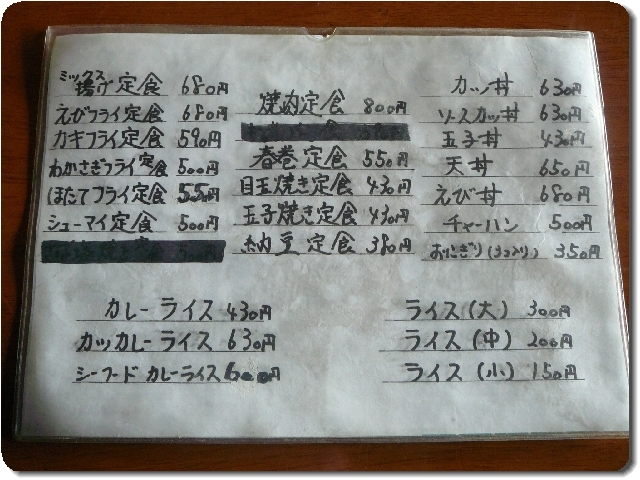 ミックス揚げ定食 680円
えびフライ定食 680円
カキフライ定食 590円
わかさぎフライ定食 500円
ほたてフライ定食 550円
シューマイ定食 500円
焼肉定食 800円
春巻定食 550円
目玉焼き定食 430円
玉子焼き定食 430円
納豆定食 380円
カツ丼 630円
ソースカツ丼 630円
玉子丼 430円
天丼 650円
えび丼 680円
チャーハン 500円
おにぎり(3コ入り) 350円
カレーライス 430円
カツカレーライス 630円
シーフードカレーライス 600円
ライス(大) 300円
ライス(中) 200円
ライス(小) 150円